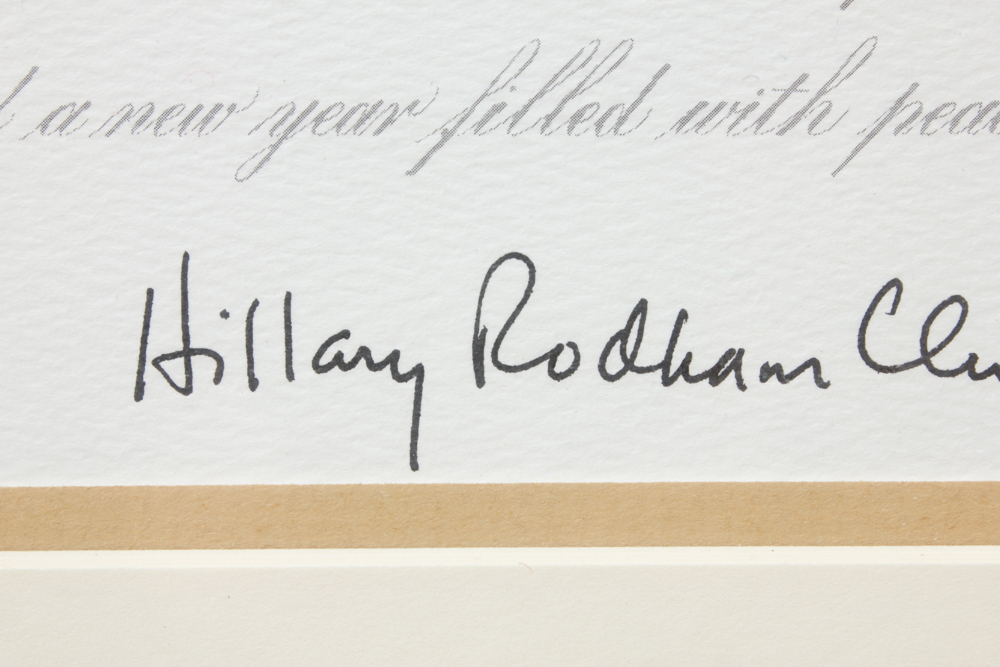 a new year filled with peac
Hillary Rodham Clin